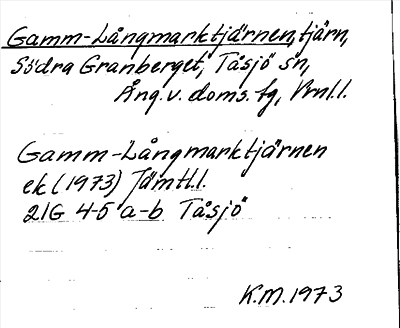 Gamm-Långmarktjärnen, tjärn,
Södra Granberget, Tåsjö sn,
Ång. v. doms. fg, Vrnl.l.
Gamm-Långmarktjärnen
ek (1973) Jämtl.l.
21G 4-5 a-b Tåsjö
K.M. 1973